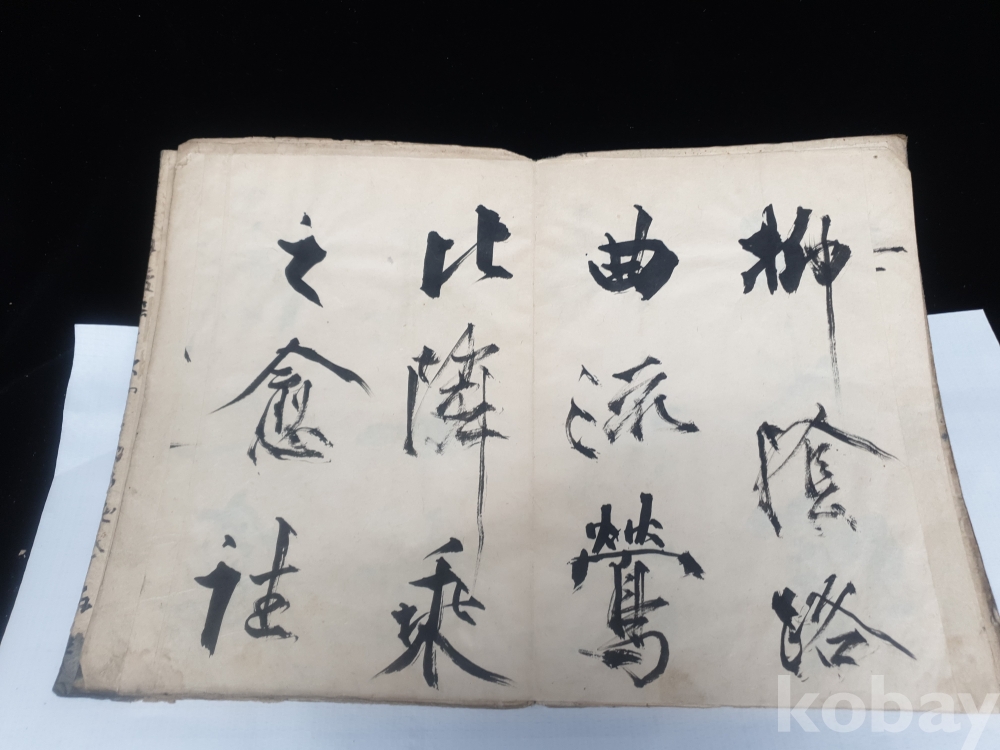 柳陰路
曲流鶯
比隣乘
之愈往
kobay